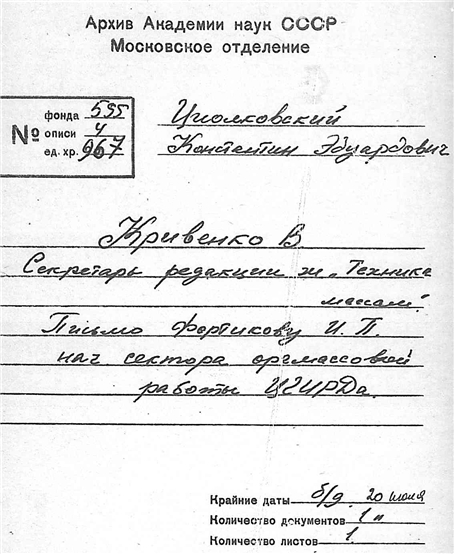 Архив Академии наук СССР
Московское отделение
№
фонда 555
описи 4
ед. хр. 967
Циолковский
Константин Эдуардович
Кривенко В.
Секретарь редакции ж „Техника
массам".
Письмо Фортикову И. П.
нач сектора оргмассовой
работы ЦГИРДа.
Крайние даты б/д. 20 июля
Количество документов 1 "
Количество листов 1.